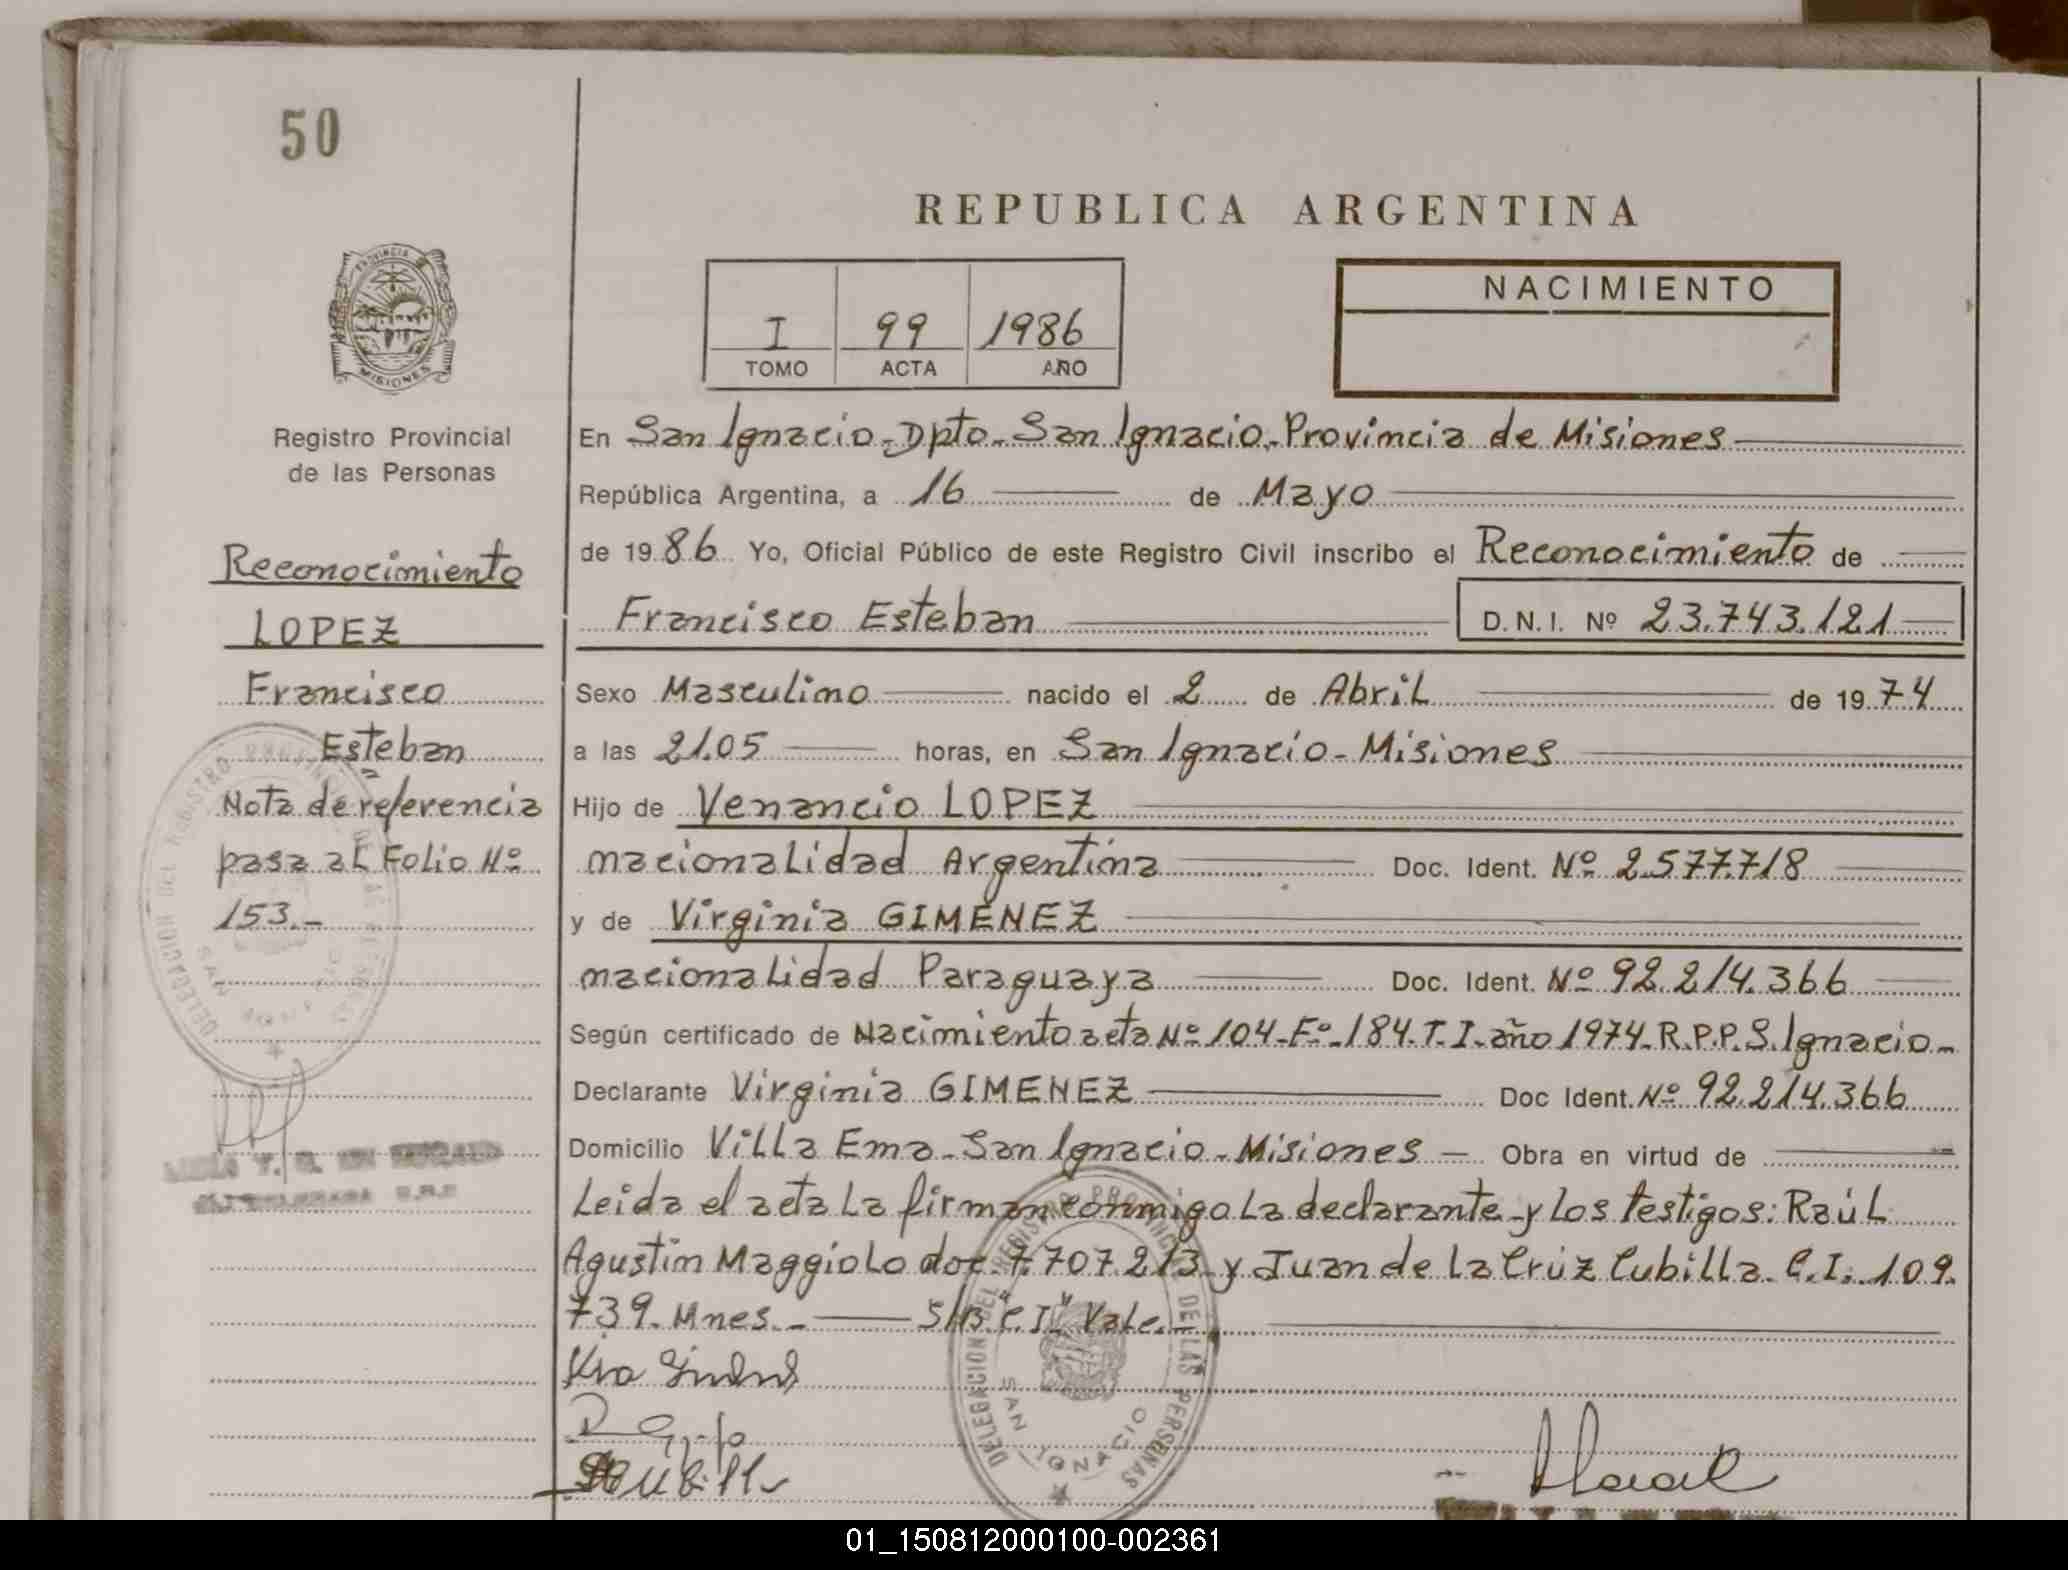 50
REPUBLICA ARGENTINA
PROVINCIA
MISIONES
NACIMIENTO
I 99 1986
TOMO ACTA AÑO
Registro Provincial
de las Personas
En San Ignacio-Dpto-San Ignacio-Provincia de Misiones
República Argentina, a 16 de Mayo
de 1986 Yo, Oficial Público de este Registro Civil inscribo el Reconocimiento de
Francisco Esteban D.N.I. Nº 23.743.121
Sexo Masculino nacido el 2 de Abril de 1974
a las 21.05 horas, en San Ignacio-Misiones
Hijo de Venancio LOPEZ
nacionalidad Argentina Doc. Ident. Nº 2.577.718
y de Virginia GIMENEZ
nacionalidad Paraguaya Doc. Ident. Nº 92.214.366
Según certificado de Nacimiento acta Nº 104-Fº-184.T.I.año 1974-R.P.P.S.Ignacio-
Declarante Virginia GIMENEZ Doc Ident. Nº 92.214.366
Domicilio Villa Ema-San Ignacio-Misiones - Obra en virtud de
Leida el acta la firman conmigo la declarante y los testigos: Raúl
Agustin Maggiolo doc. 7.707.213 y Juan de la Crúz Cubilla. C.I. 109.
739. Mnes.- S/B "C.I" Vale.-
Reconocimiento
LOPEZ
Francisco
Esteban
Nota de referencia
pasa al Folio Nº
153.-
DELEGACION DEL REGISTRO PROVINCIAL DE LAS PERSONAS
SAN IGNACIO
DELEGACION DEL REGISTRO PROVINCIAL DE LAS PERSONAS
SAN IGNACIO
01_150812000100-002361